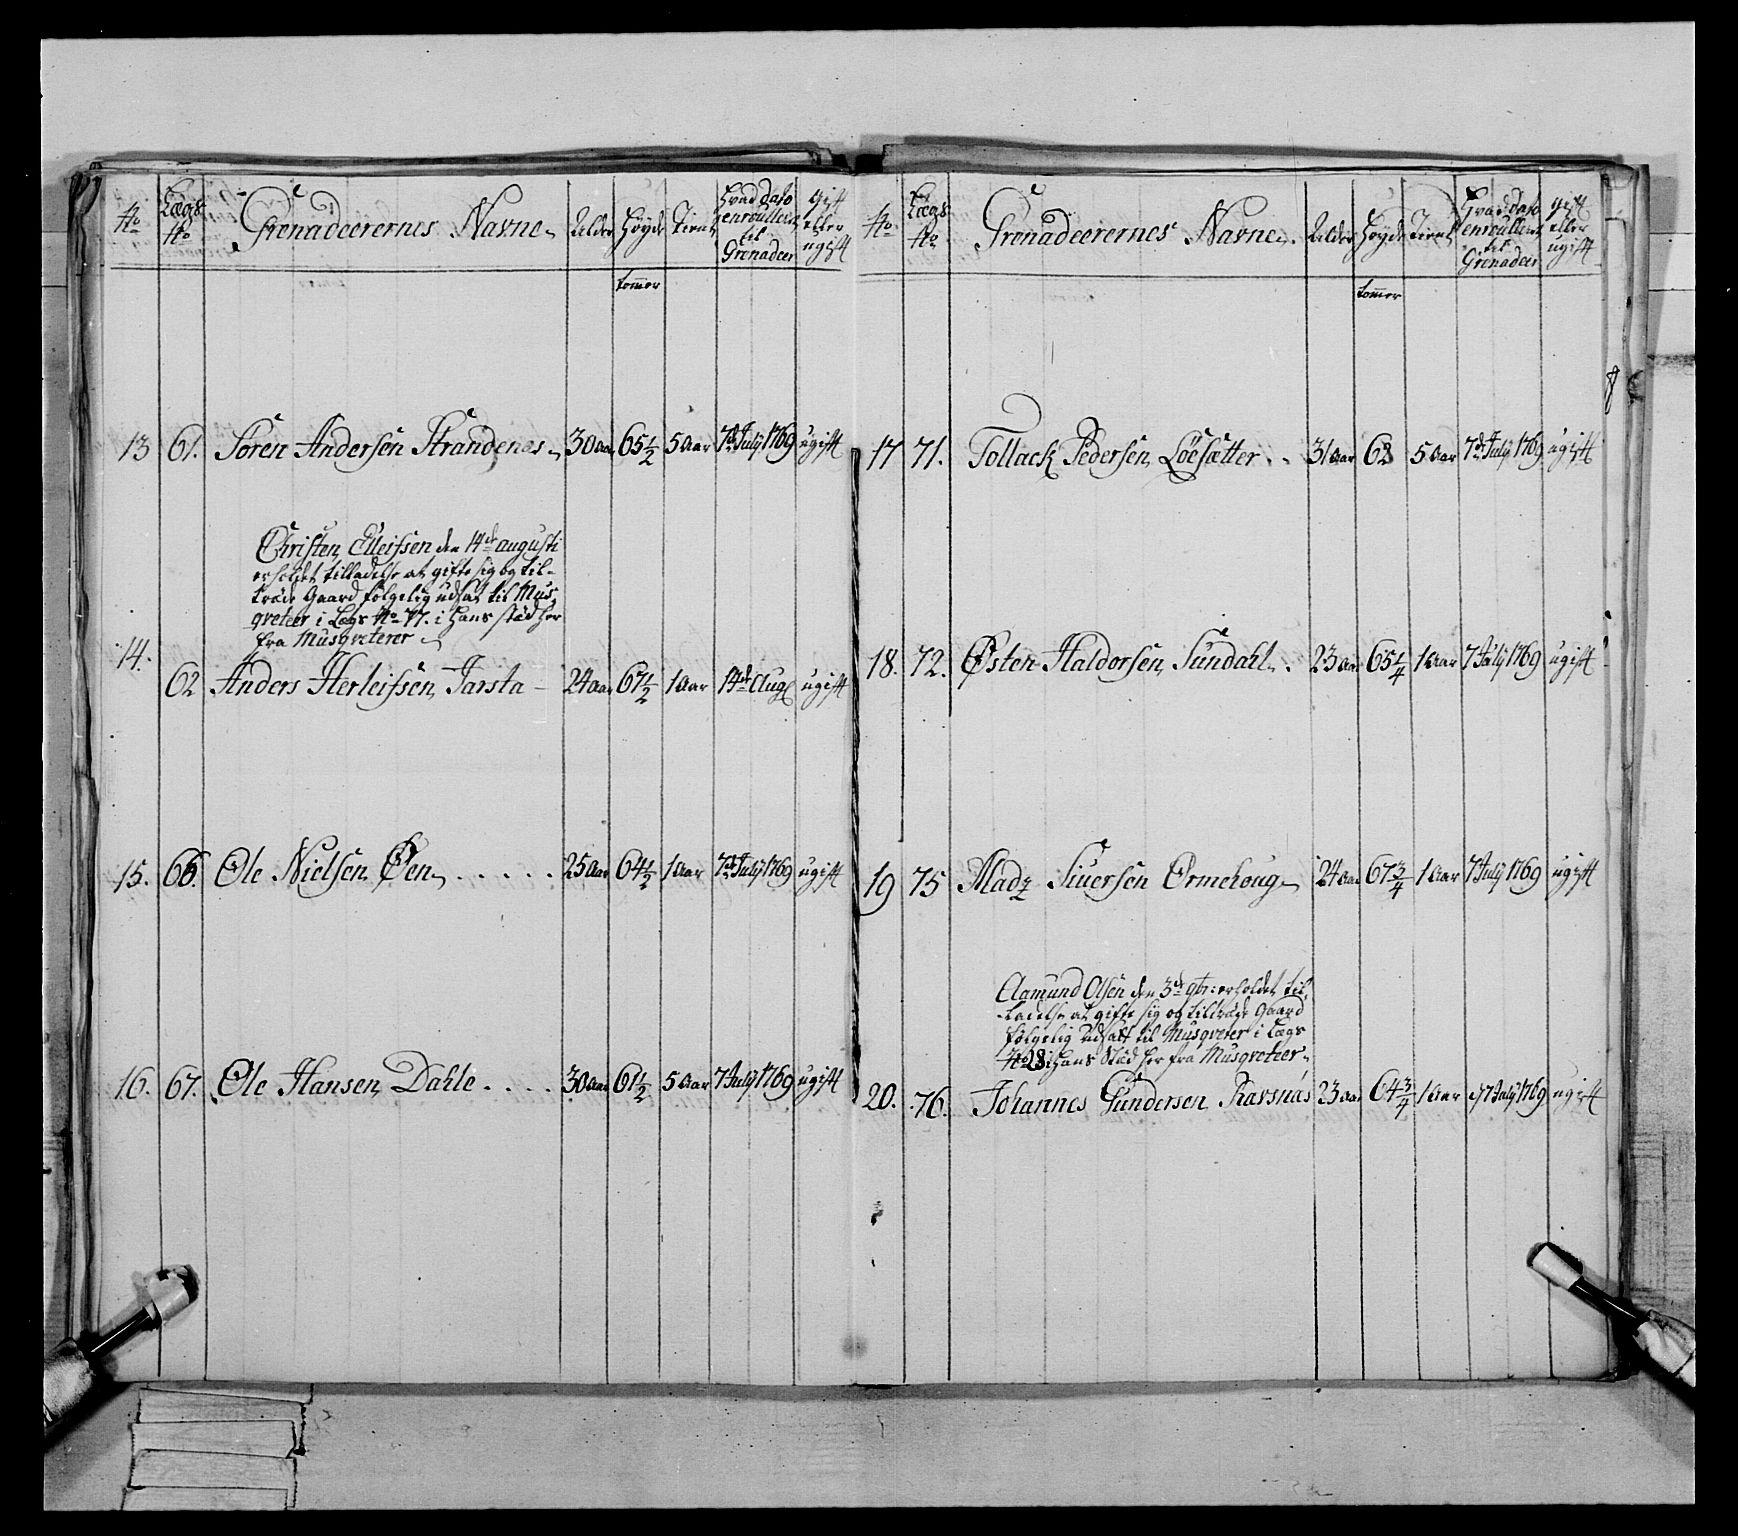 No Lægs No Grenadeerernes Navne Alder Høyde Tient Hvad Dato enroulleret til Grenadeer gift eller ugift
tommer
13 61. Søren Andersen Strandenes 30 aar 65 1/2 5 aar 7de July 1769 ugift
Christen Elleifsen den 14de augusti
erholdet tilladelse at gifte sig og til-
træde Gaard følgelig udsat til Mus-
qveteer i Lægs No 77. i Hans stæd her
fra Musqveterer
14.
62 Anders Herleifsen Jarsta 24 aar 67 1/2 1 aar 14de Aug ugift
15. 66. Ole Nielsen Øen . . . . . 25 aar 64 1/2 1 aar 7de July 1769 ugift
16. 67. Ole Hansen Dahle . . . . 30 aar 61 1/2 5 aar 7 July 1769 ugift
No Lægs No Grenadeerernes Navne Alder Høyde Tient Hvad Dato enroulleret til Grenadeer gift eller ugift
tommer
8
17 71. Tollack Pedersen Løesætter . . 31 aar 62 5 aar 7de July 1769 ugift
18. 72. Østen Haldorsen Sundahl . 23 aar 65 1/4 1 aar 7 July 1769 ugift
19 75 Madz Siversen Ormehoug 24 aar 67 3/4 1 aar 7 July 1769 ugift
Aamund Olsen den 3de 9br: erholdet til-
ladelse at gifte sig og tiltræde Gaard
følgelig udsatt til Musqveter i Lægs
No 28 i Hans Stæd her fra Musqveteer
20. 76. Johannes Gundersen Ravsnäs 23 aar 64 3/4 1 aar 7 July 1769 ugift